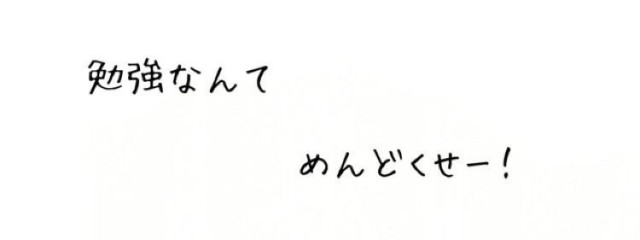 勉強なんて
めんどくせー!